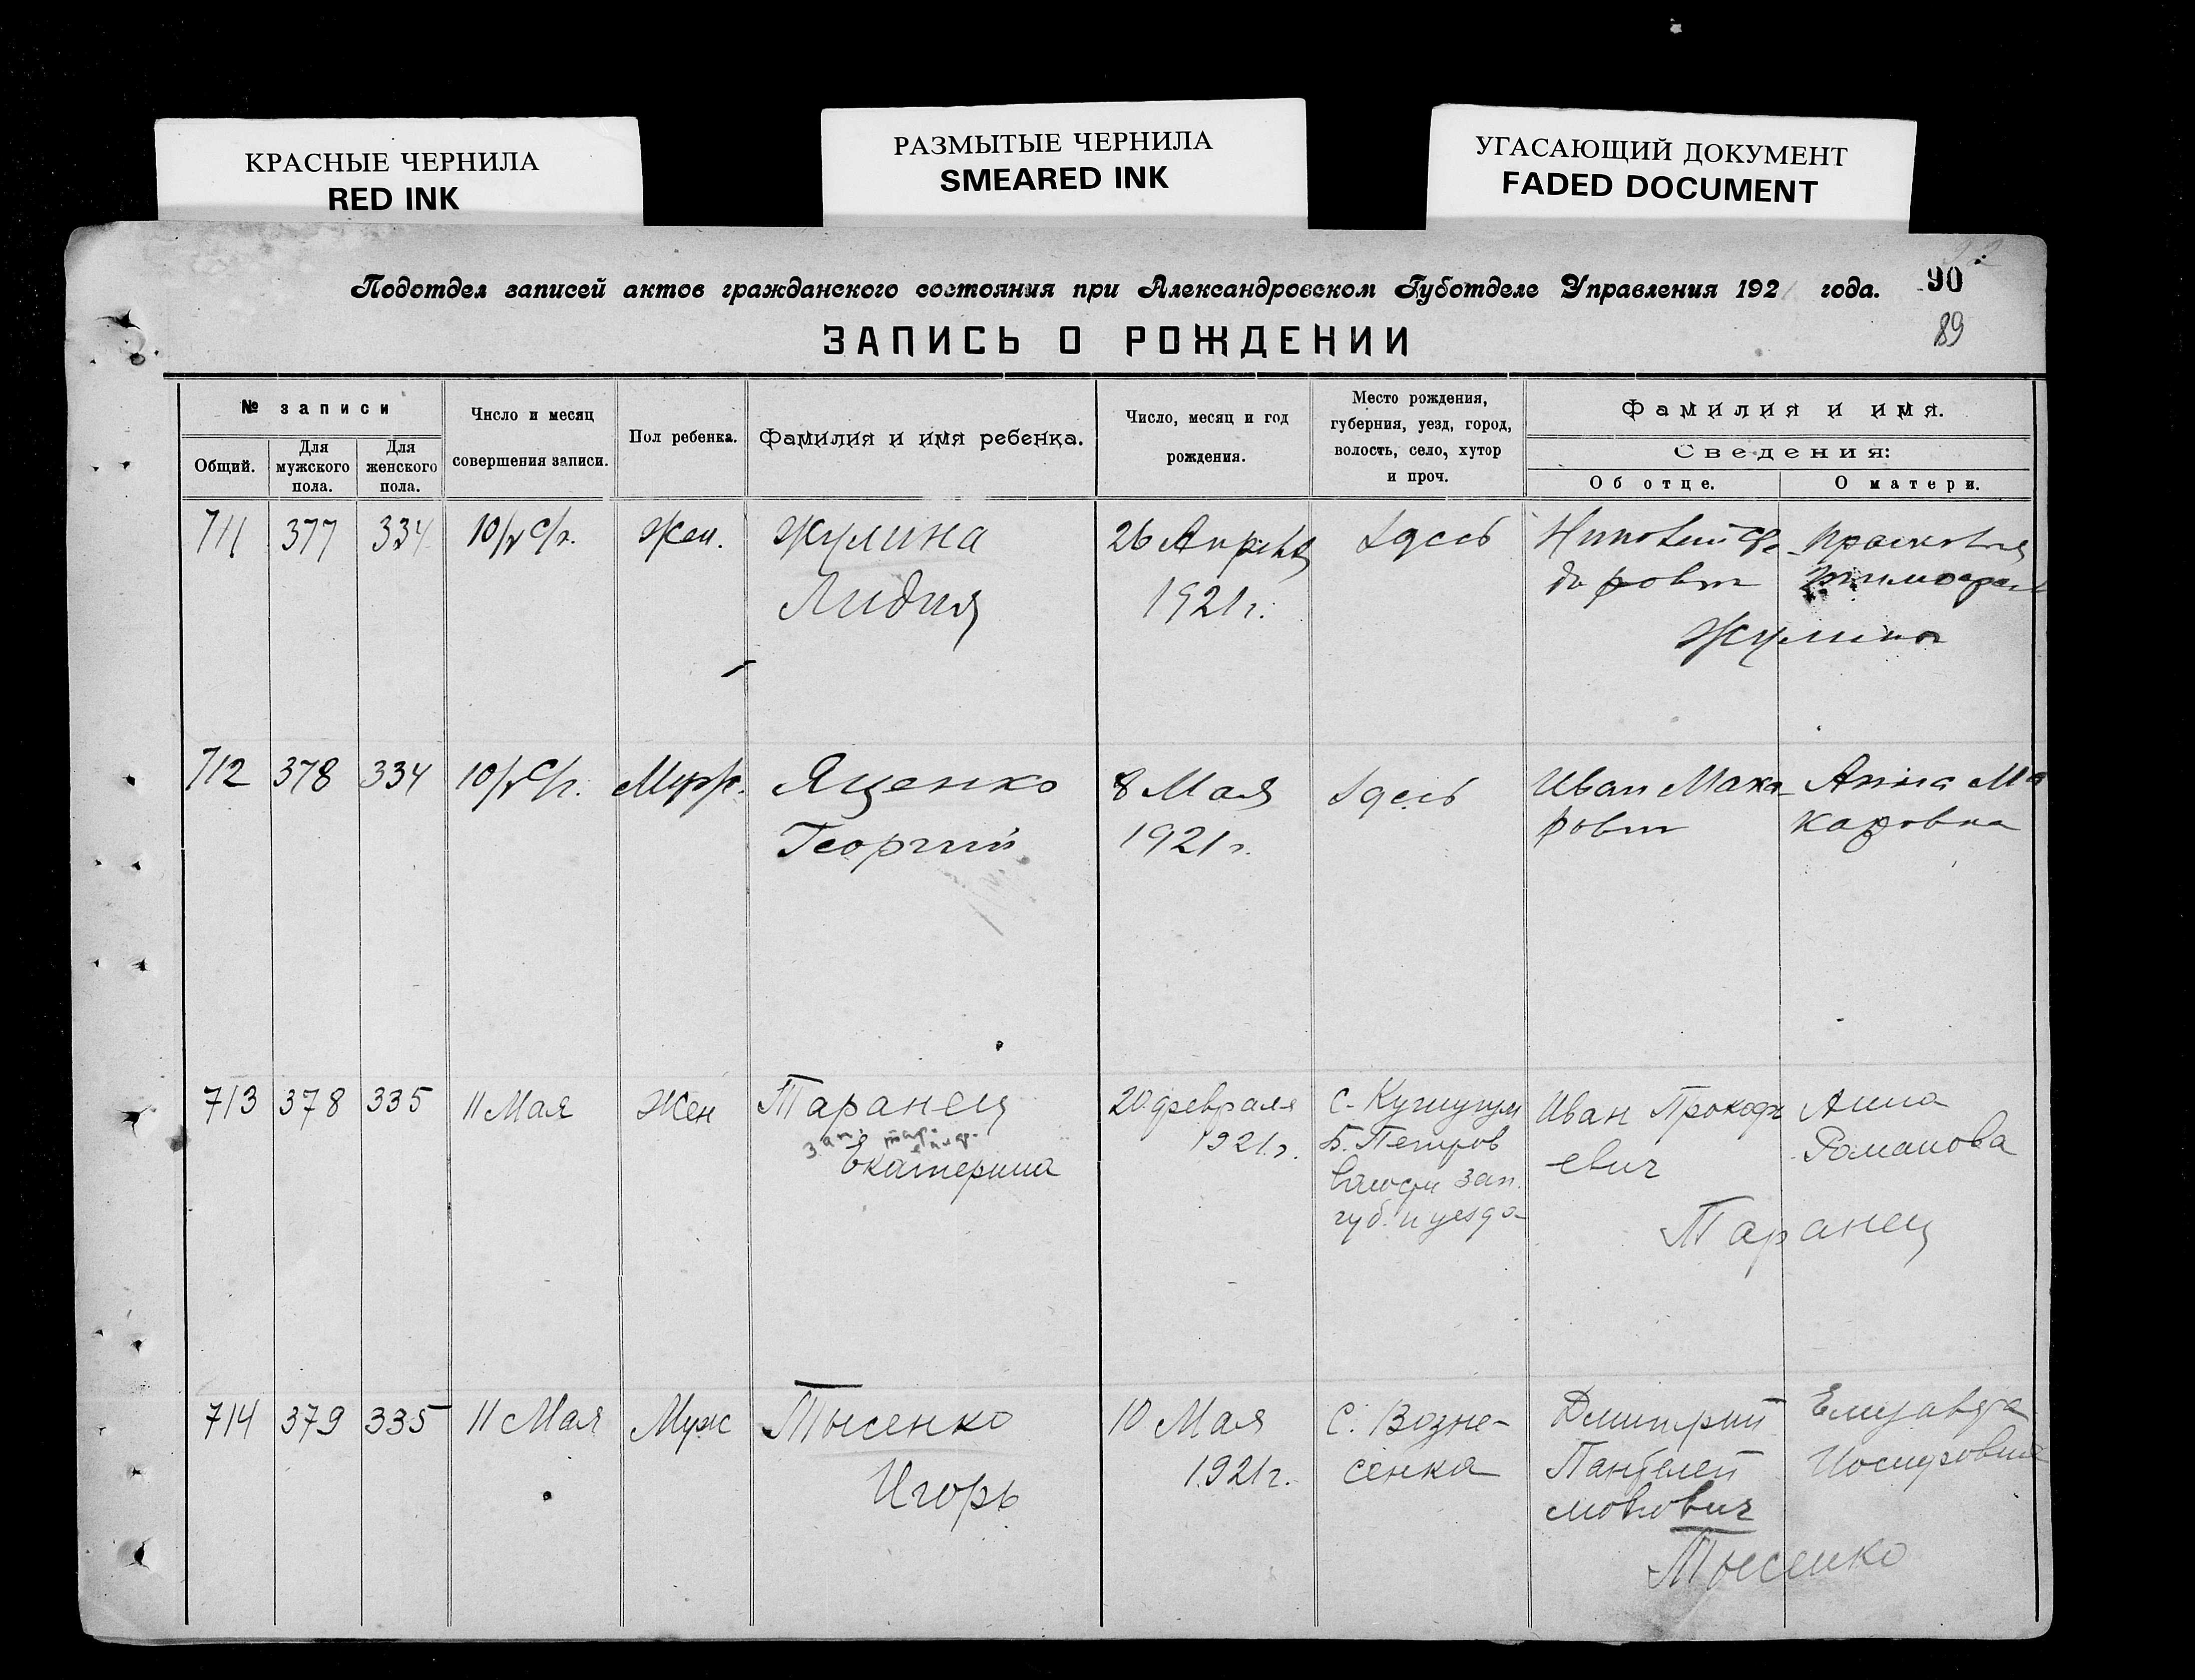 КРАСНЫЕ ЧЕРНИЛА
RED INK
РАЗМЫТЫЕ ЧЕРНИЛА
SMEARED INK
УГАСАЮЩИЙ ДОКУМЕНТ
FADED DOCUMENT
Подотдел записей актов гражданского состояния при Александровском Губотделе Управления 192 года.
90
89
ЗАПИСЬ О РОЖДЕНИИ
№ записи
Общий.
Для мужского пола.
Для женского пола.
Число и месяц совершения записи.
Пол ребенка.
Фамилия и имя ребенка.
Число, месяц и год рождения.
Место рождения, губерния, уезд, город, волость, село, хутор и проч.
Фамилия и имя.
Сведения:
Об отце.
О матери.
711 377 334 10/V с/г. Жен. Жулина 26 Апреля Здесь
Лидия 1921 г.
Жулины
712 378 334 10/V с/г. Муж. Яценко 8 Мая Здесь Иван Мака Анна Ма
Георгий 1921 г. рович каровна
713 378 335 11 Мая Жен Таранец 20 февраля с. Кушугум Иван Прокоф Анна
1921 г. Б. Петров евич Романова
Екатерина зап.
губ. и уезда
Таранец
714 379 335 11 Мая Муж Тысенко 10 Мая С. Возне- Дмитрий Елизавета
Игорь 1921 г. сенка Пантелей Иосифовна
монович
Тысенко